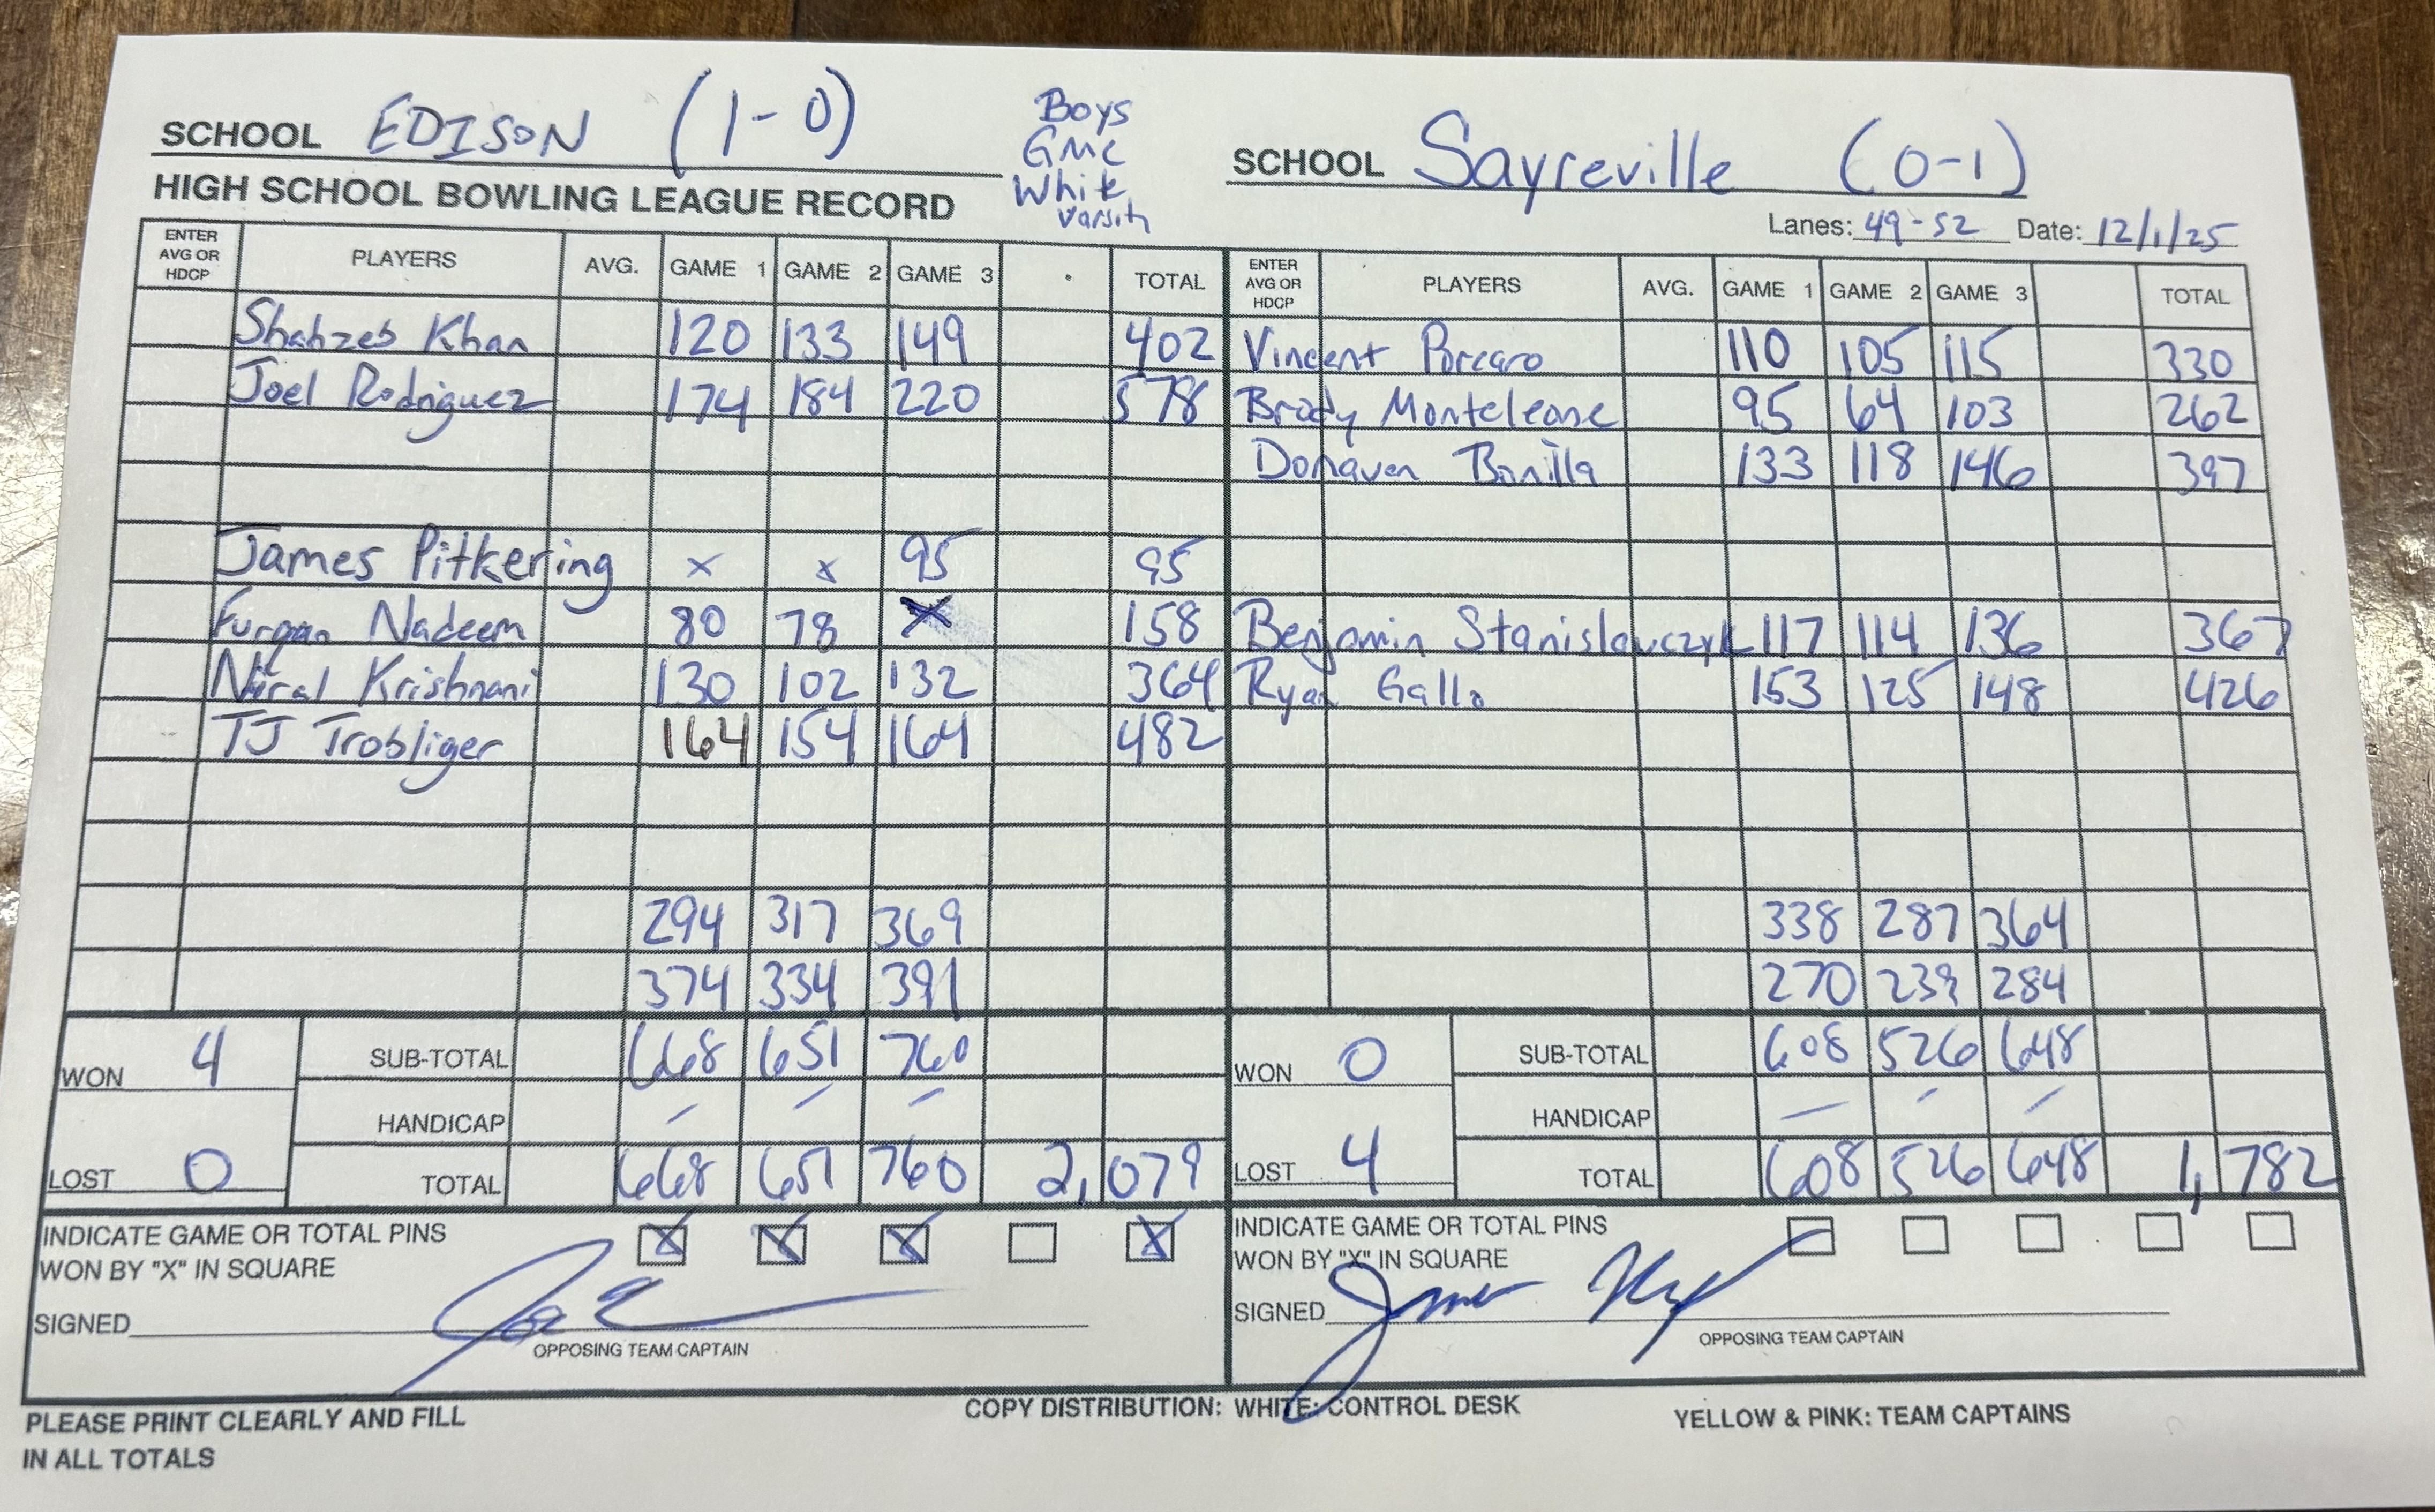 SCHOOL EDISON (1-0)
Boys
GMC
White
Varsity
SCHOOL Sayreville (0-1)
HIGH SCHOOL BOWLING LEAGUE RECORD
Lanes: 49-52 Date: 12/1/25
ENTER AVG OR HDCP PLAYERS AVG. GAME 1 GAME 2 GAME 3 TOTAL ENTER AVG OR HDCP PLAYERS AVG. GAME 1 GAME 2 GAME 3 TOTAL
Shahzeb Khan 120 133 149 402 Vincent Porcaro 110 105 115 330
Joel Rodriguez 174 184 220 578 Brody Monteleone 95 64 103 262
Donaven Bonilla 133 118 146 397
James Pitkering x x 95 95
Furqan Nadeem 80 78 X 158 Benjamin Stanislawczyk 117 114 136 367
Niral Krishnani 130 102 132 364 Ryan Gallo 153 125 148 426
TJ Trobliger 164 154 164 482
294 317 369 338 287 364
374 334 391 270 239 284
WON 4 SUB-TOTAL 668 651 760 WON 0 SUB-TOTAL 608 526 648
HANDICAP – – – HANDICAP – – –
LOST 0 TOTAL 668 651 760 2,079 LOST 4 TOTAL 608 526 648 1,782
INDICATE GAME OR TOTAL PINS X X X X INDICATE GAME OR TOTAL PINS
WON BY "X" IN SQUARE WON BY "X" IN SQUARE
SIGNED SIGNED
OPPOSING TEAM CAPTAIN OPPOSING TEAM CAPTAIN
PLEASE PRINT CLEARLY AND FILL
IN ALL TOTALS
COPY DISTRIBUTION: WHITE: CONTROL DESK YELLOW & PINK: TEAM CAPTAINS